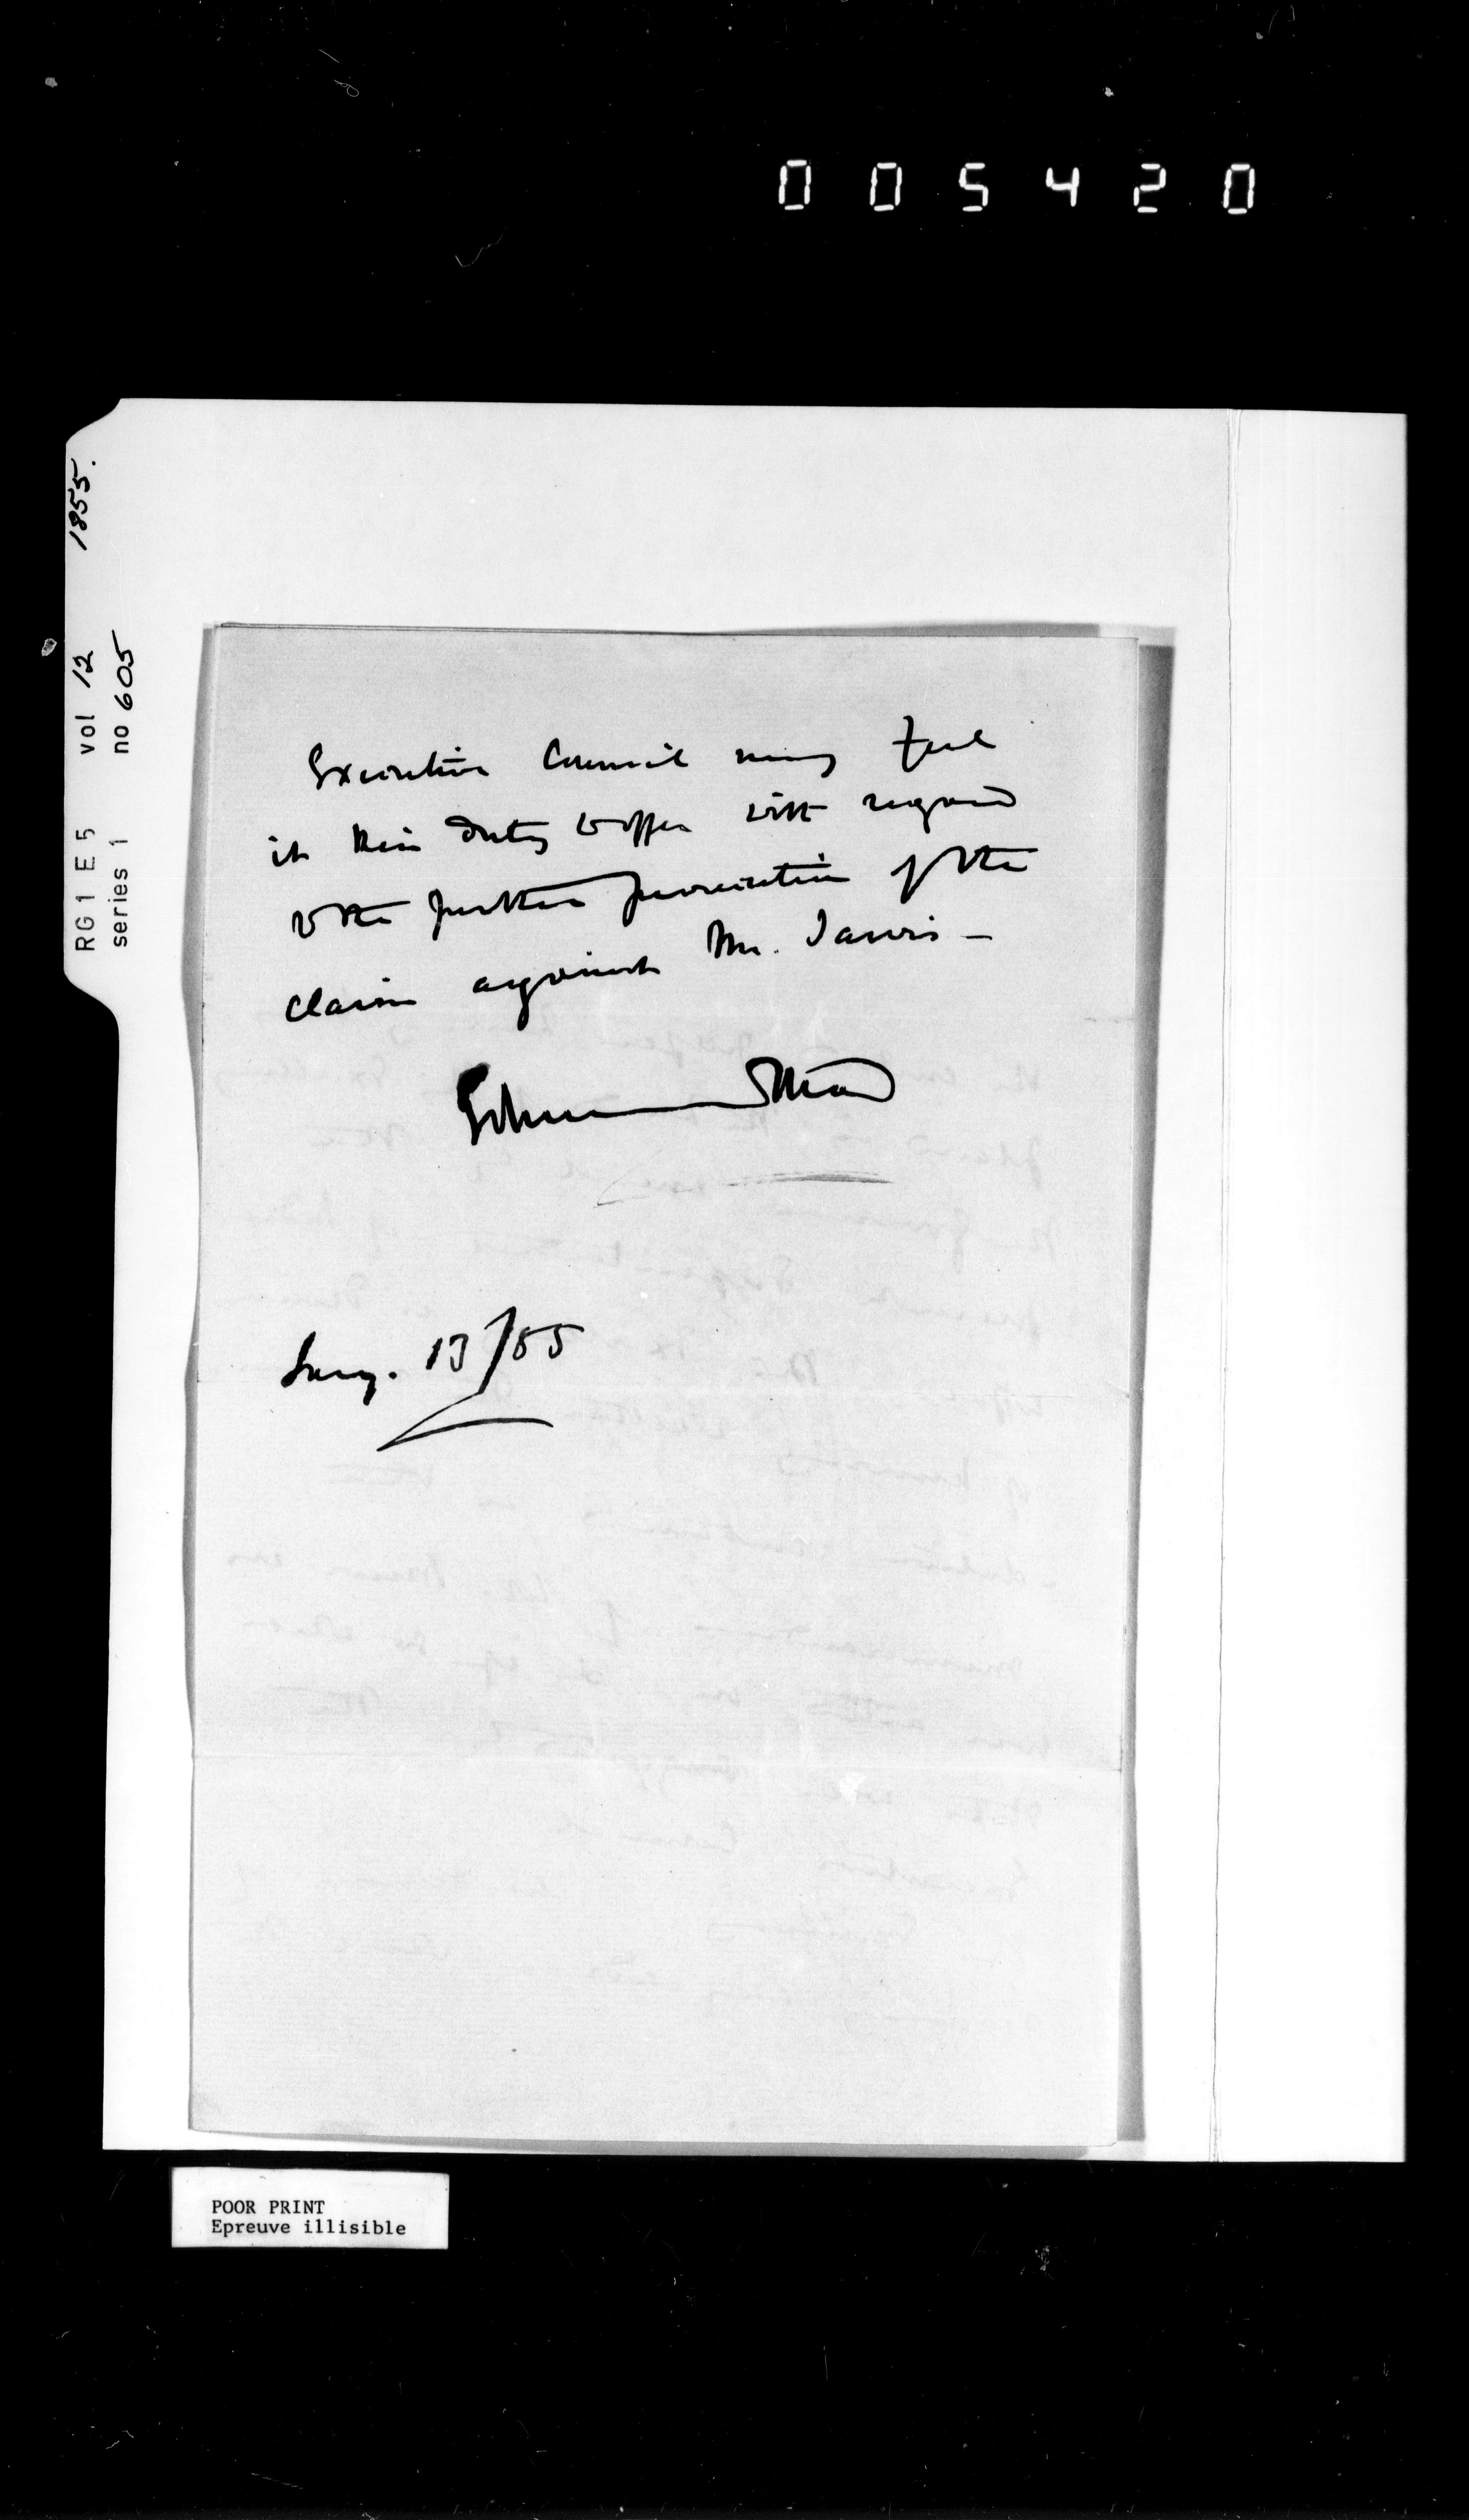 005420
1855.
RG1 E5 vol 12
series 1 no 605
Executive Council may feel
it their duty to offer with regard
to the further prosecution of the
claim against Mr. Jarvis —
Edmund Head
13/55
POOR PRINT
Epreuve illisible